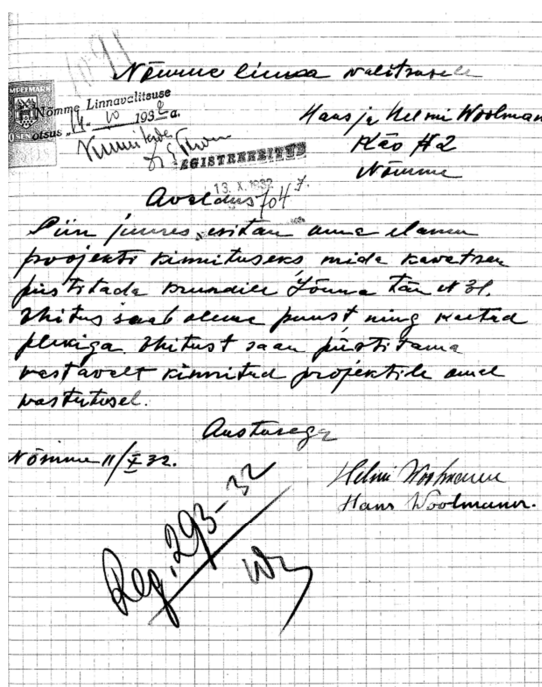 Nõmme linna valitsusele
Nõmme Linnavalitsuse
otsus 14. VO 1932 a.
Hans ja Helmi Woolman
Käo № 2
Nõmme
REGISTREERITUD
13. X. 1932
704
Avaldus
Siin juures esitan oma elamu
projekti kinnituseks mida kavatsen
püstitada krundile Sõnna tän N 31.
Ehitus saab olema puust ning kaetud
plekiga. Ehitust saan püstitama
vastavelt kinnitud projektile omal
vastutusel.
Austusega
Nõmme 11/X 32.
Helmi Woolmann
Hans Woolmann.
Reg. 293-32